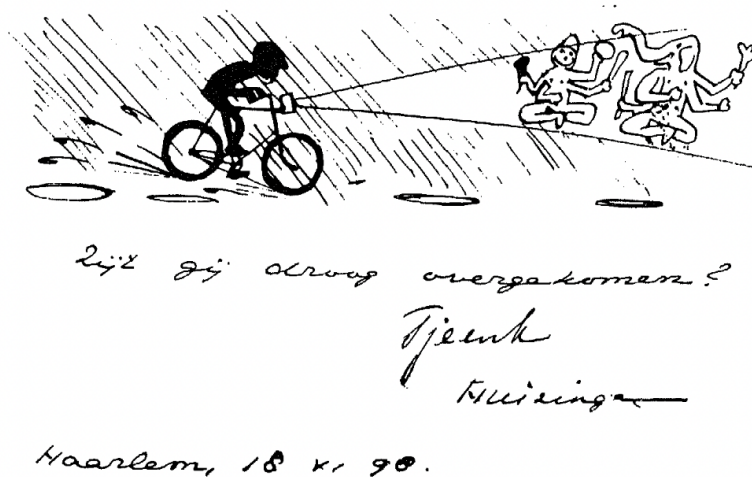 Zijt gij droog overgekomen?
Tjeenk
Huizinga
Haarlem, 18 XI 98.